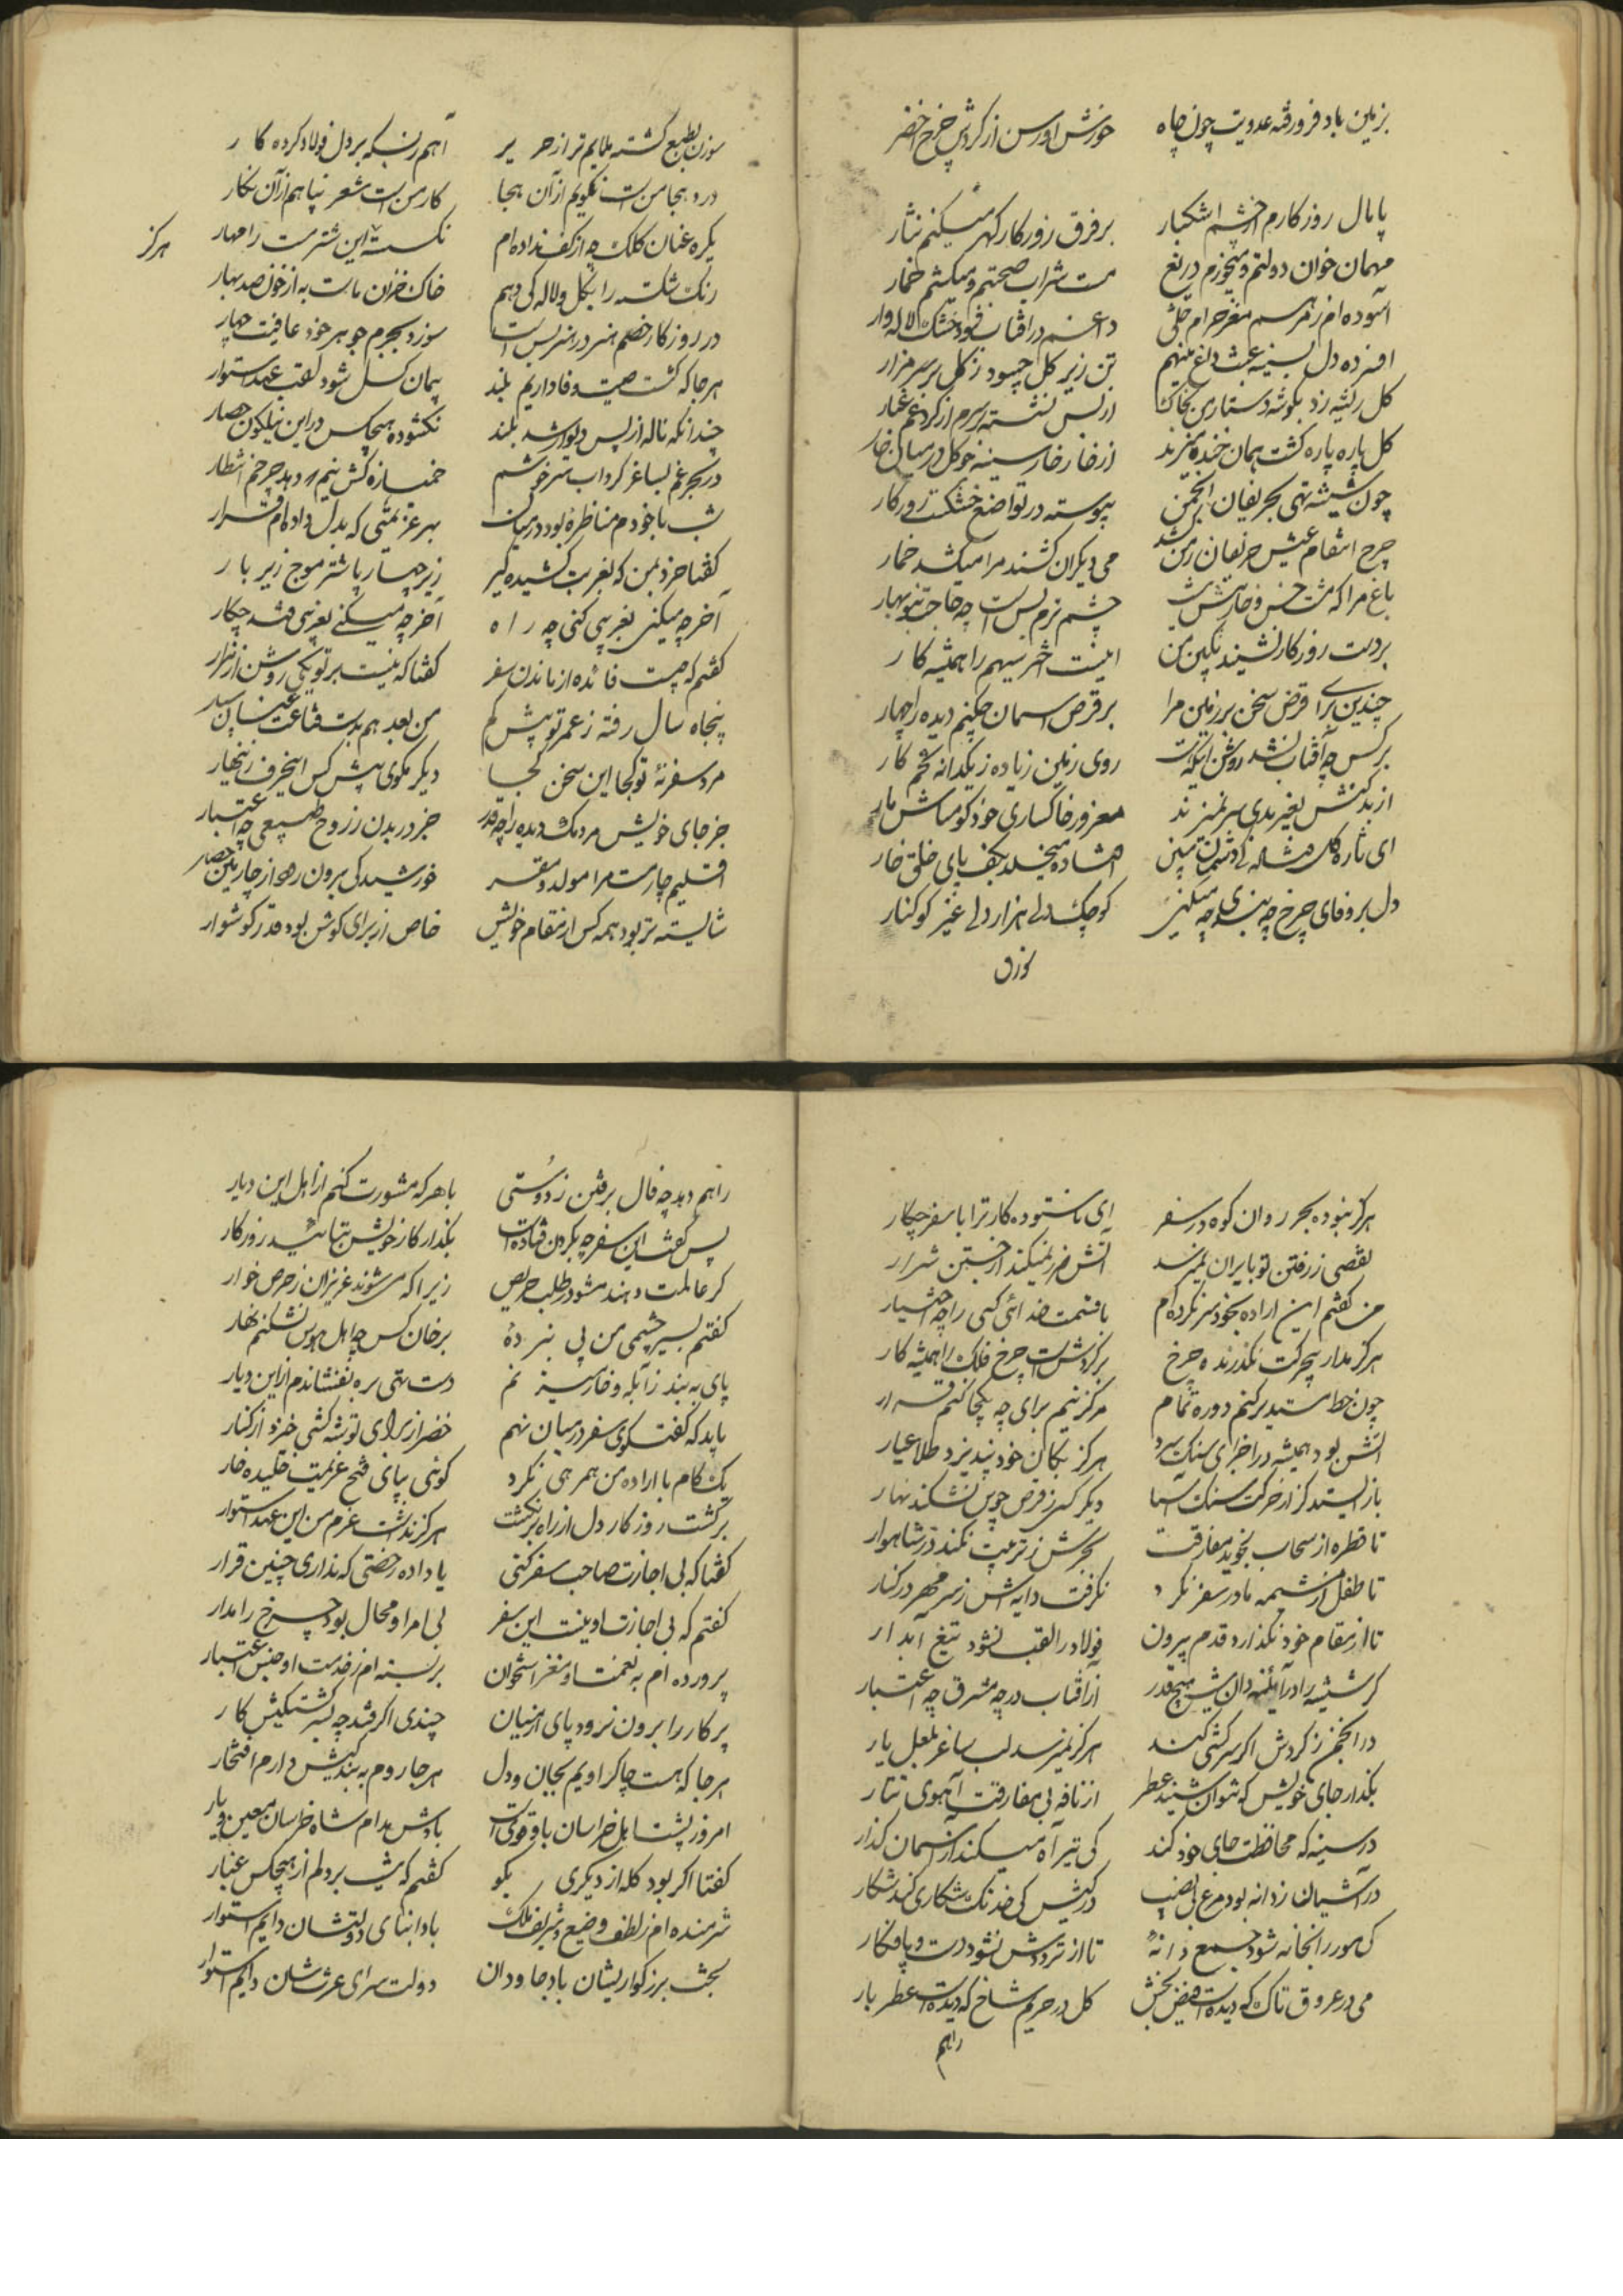 بزمین باد فرورفته عدویت چون چاه خورش اورس از کردش چرخ اخضر
پامال روزکارم از چشم اشکبار بر فرق روزکار کهر میکنم نثار
مهمان خوان دولتم و میخورم دریغ مست شراب صحتم و میکشم خمار
آسوده ام ز مرهم داغم در افتاب
افسرده دل بسینه عبث داغ مینهم تن زیر کل چسود ز کل بر سر مزار
کل ریشه زد بکوشه دستار من ز خاک از بس نشسته بر سرم از کرد غم غبار
کل پاره پاره کشت همان خنده میزند از خار خار سینه چو کل در میان خار
چون شیشه تهی بحریفان انجمن پیوسته در تواضع خشکست روزکار
چرخ انتقام عیش حریفان ز من کشد می دیکران کشند مرا میکشد خمار
باغ مرا که مشت خس و خار بیش نیست چشم ترم بس است چه حاجت بنوبهار
بر دست روزکار نشیند نکین من اینست اختر سیهم را همیشه کار
چندین برای قرض سخن بر زمین مرا بر قرص اسمان چکنم دیده را چهار
بر کس چه آفتاب نشد روشن اینکه هست روی زمین زیاده ز یکدانه تخم کار
از بدکنش بغیر بدی سر نمیزند مغرور خاکساری خود کو مباش مار
ای تازه کل افتاده میخلد بکف پای خلق خار
دل بر وفای چرخ چه بندی چه میکنی کوچک دلی هزار دلی غیر کوکنار
سوزن بطبع کشته ملایم تر از حریر آهم ز بسکه بر دل فولاد کرده کار
درد هجا من است نکویم از آن هجا کار من است شعر نیاهم از آن نکار
یکره عنان کلک چه از کف نداده ام نکسسته این شتر مست را مهار
هرکز
رنک شکسته را بکل و لاله کی دهم خاک خزان ماست به از خون صد بهار
در روزکار خصم هنر در هنر بس است سوزد بجرم جوهر خود عاقبت چهار
هر جا که کشت صیت وفاداریم بلند پیمان کسل شود لقب عهد استوار
چندانکه ناله از پس دیوار شد بلند نکشوده هیچکس در این نیلکون حصار
در بحر غم بساغر کرداب سرخوشم خمیازه کش نیم دهد چرخم انتظار
شب با خودم مناظره بود در میان بهر عزیمتی که بدل داده ام قرار
کفتا خرد بمن که بغربت کشیده کیر زین چهار پا شتر موج زیر بار
آخر چه میکنی بغریبی کنی چه راه آخر چه میکنی بغریبی فتد چکار
کفتم که چیست فائده از ماندن سفر کفتا که نیست بر تو یکی روشن از هزار
پنجاه سال رفته ز عمر تو پیش کم من بعد هم بدست قناعت عنان سپار
مرد سفر نئه تو کجا این سخن کجا دیکر مکوی پیش کس اینحرف زینهار
جز جای خویش مردمک دیده را چه قدر جز در بدن ز روح طبیعی چه اعتبار
اقلیم چار مست مرا مولد و مقر خورشید کی برون رود از چارمین حصار
شایسته تر بود همه کس از مقام خویش خاص از برای کوش بود قدر کوشوار
هرکز نبوده بحر روان کوه در سفر ای ناستوده کار ترا با سفر چکار
نقصی ز رفتن تو بایران نمیرسد آتش ضرر نمیکند از جستن شرار
من کفتم این اراده بخود سر نکرده ام با قسمت خدائی کسی را چه اختیار
هرکز مدار بیحرکت نکذرنده چرخ بر کردش است چرخ فلک را همیشه کار
چون خط مستدیر کنم دوره تمام مرکز نیم برای چه یکجا کنم قرار
آتش بود همیشه در اجزای سنک سرد هرکز بکان خود نپذیرد طلا عیار
باز ایستد کز از حرکت سنک آسیا دیکر کسی ز قرص جوین نشکند نهار
تا قطره از سحاب نجوید مفارقت بحرش ز تربیت نکند در شاهوار
تا طفل از مشیمه مادر سفر نکرد نکرفت دایه اش ز سر مهر در کنار
تا از مقام خود نکذارد قدم برون فولاد را لقب نشود تیغ آبدار
کر شیشه را در آئینه دان بیش هیچ قدر از آفتاب در چه مشرق چه اعتبار
در انجمن ز کردش اکر سرکشی کند هرکز نمیرسد لب ساغر بلعل یار
بکذار جای خویش که نتوان شنید عطر از نافه بی مفارقت آهوی تتار
در سینه که محافظت جای خود کند کی تیر آه میکند از آسمان کذار
در آشیان ز دانه بود مرغ بی نصیب در کیش کی خدنک شکاری کند شکار
کی مور را بخانه شود جمع دانه تا از ترددش نشود دست و پا فکار
می در عروق تاک که دیدست فیض بخش کل در حریم شاخ که دیدست عطر بار
راهم
راهم دهد چه فال برفتن ز دوستی با هر که مشورت کنم از اهل این دیار
پس کفت این سفر چه بکردن فتاده است بکذار کار خویش بتائید روزکار
کر عالمت دهند مشو در طلب حریص زیرا که می شوند عزیزان ز حرص خوار
کفتم بسیر چشمی من پی نبرده بر خان کس چه اهل هوس نشکنم نهار
پای به بند ز آبله و خار نیز نم دست تهی بره نفشاندم از این دیار
باید که کفتکوی سفر در میان نهم خضر از برای توشه کشی خیزد از کنار
یک کام با اراده من همرهی نکرد کوئی بپای فسخ عزیمت خلیده خار
برکشت روزکار دل از راه برنکشت هرکز نداشت عزم من این عهد استوار
کفتا که بی اجازت صاحب سفر کنی یا داده رخصتی که نداری چنین قرار
کفتم که بی اجازت او نیست این سفر بی امر او محال بود چرخ را مدار
پرورده ام به نعمت او مغز استخوان بر بسته ام ز خدمت او جنس اعتبار
پرکار را برون نرود پای از میان چندی اکر فتد چه بسر کشتکیش کار
هر جا که هست چاکر اویم بجان و دل هر جا روم به بندکیش دارم افتخار
امروز پشت اهل خراسان باو قوی است بادش مدام شاه خراسان معین و یار
کفتا اکر بود کله از دیکری بکو کفتم که نیست بر دلم از هیچکس غبار
شرمنده ام ز لطف وضیع و شریف ملک بادا بنای دولتشان دایم استوار
بخت بزرکواریشان باد جاودان دولت سرای عزتشان دایم استوار